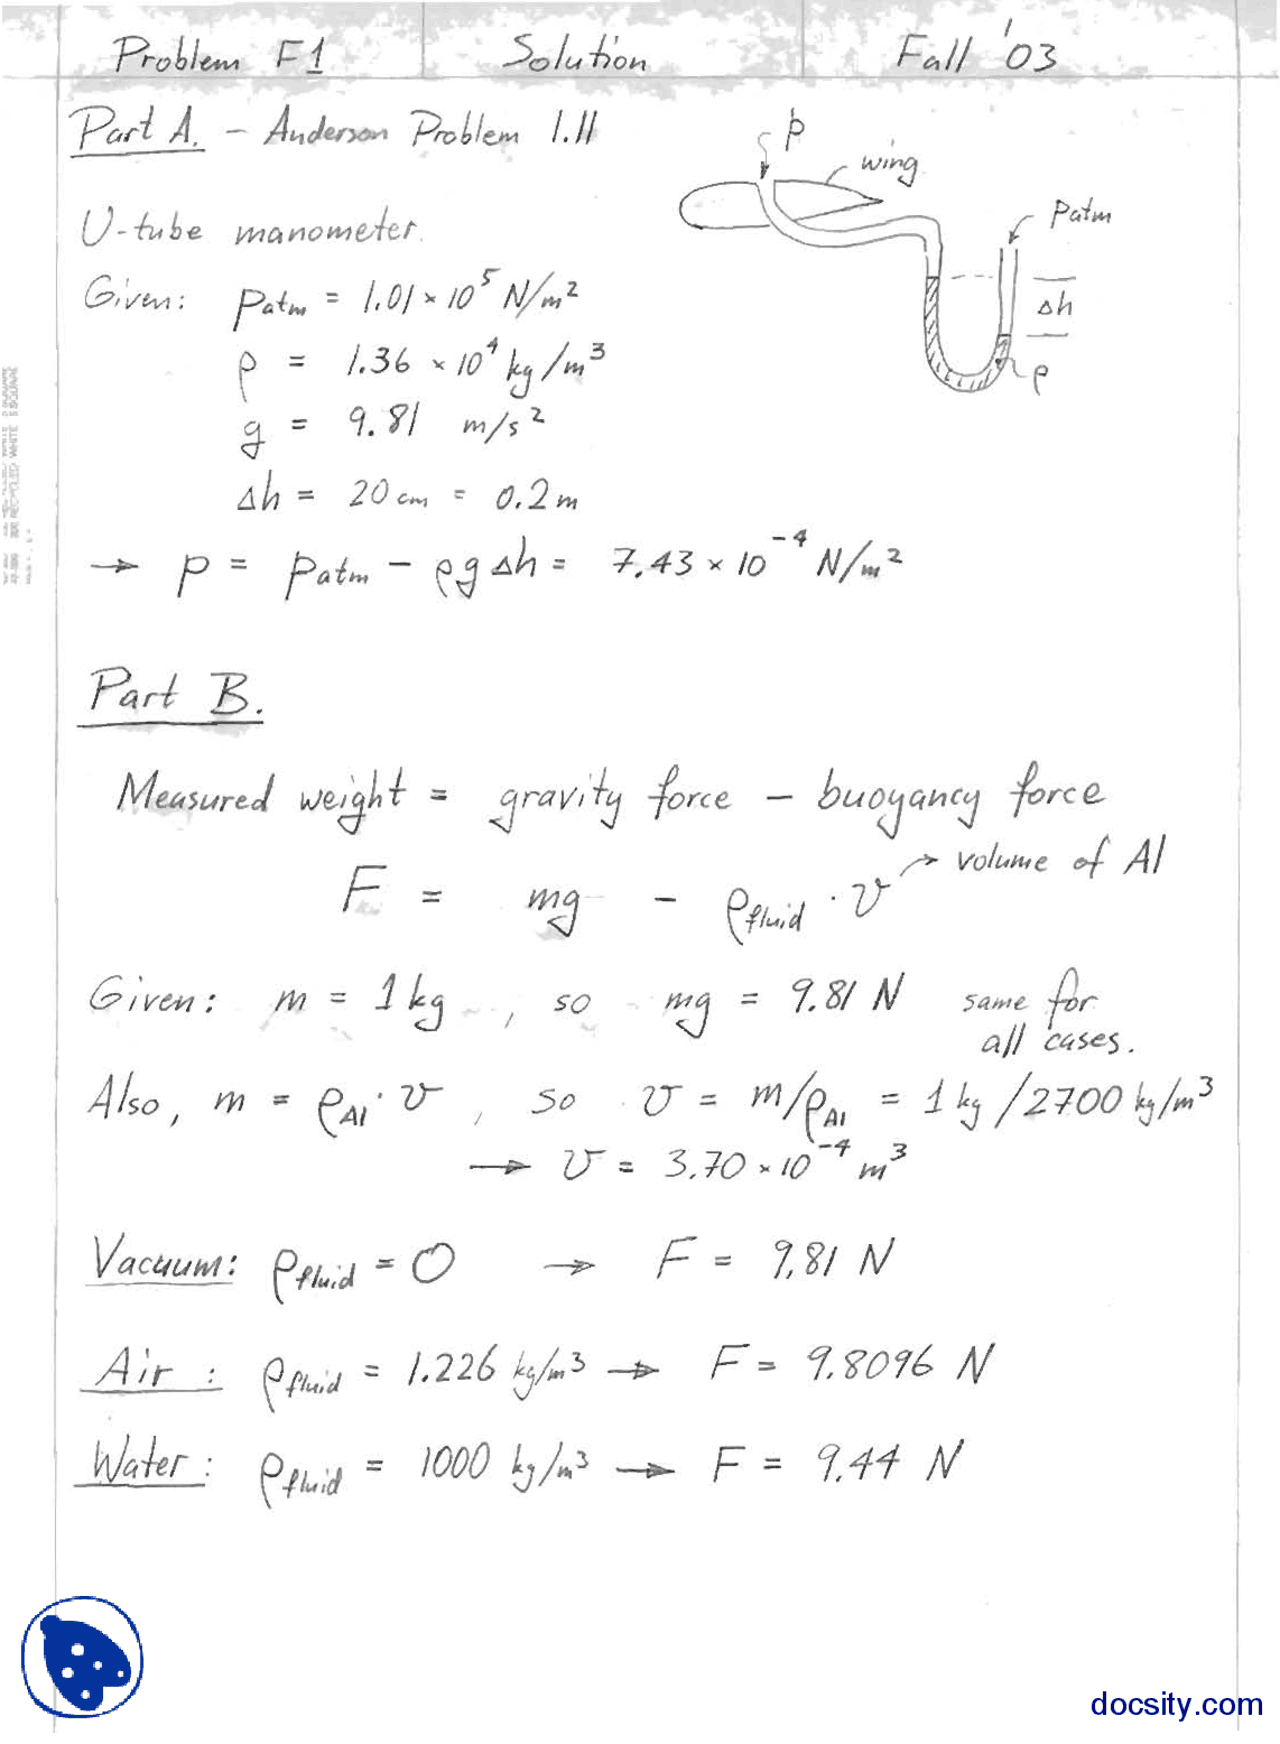 Problem F1 Solution Fall '03
Part A. – Anderson Problem 1.11
p
wing
Patm
Δh
ρ
U-tube manometer.
Given: Patm = 1.01 × 10⁵ N/m²
ρ = 1.36 × 10⁴ kg/m³
g = 9.81 m/s²
Δh = 20 cm = 0.2 m
→ p = Patm − ρgΔh = 7.43 × 10⁻⁴ N/m²
Part B.
Measured weight = gravity force − buoyancy force
F = mg − ρfluid · v → volume of Al
Given: m = 1 kg , so mg = 9.81 N same for
all cases.
Also, m = ρAl · v , so v = m/ρAl = 1 kg / 2700 kg/m³
→ v = 3.70 × 10⁻⁴ m³
Vacuum: ρfluid = 0 → F = 9.81 N
Air : ρfluid = 1.226 kg/m³ → F = 9.8096 N
Water : ρfluid = 1000 kg/m³ → F = 9.44 N
docsity.com